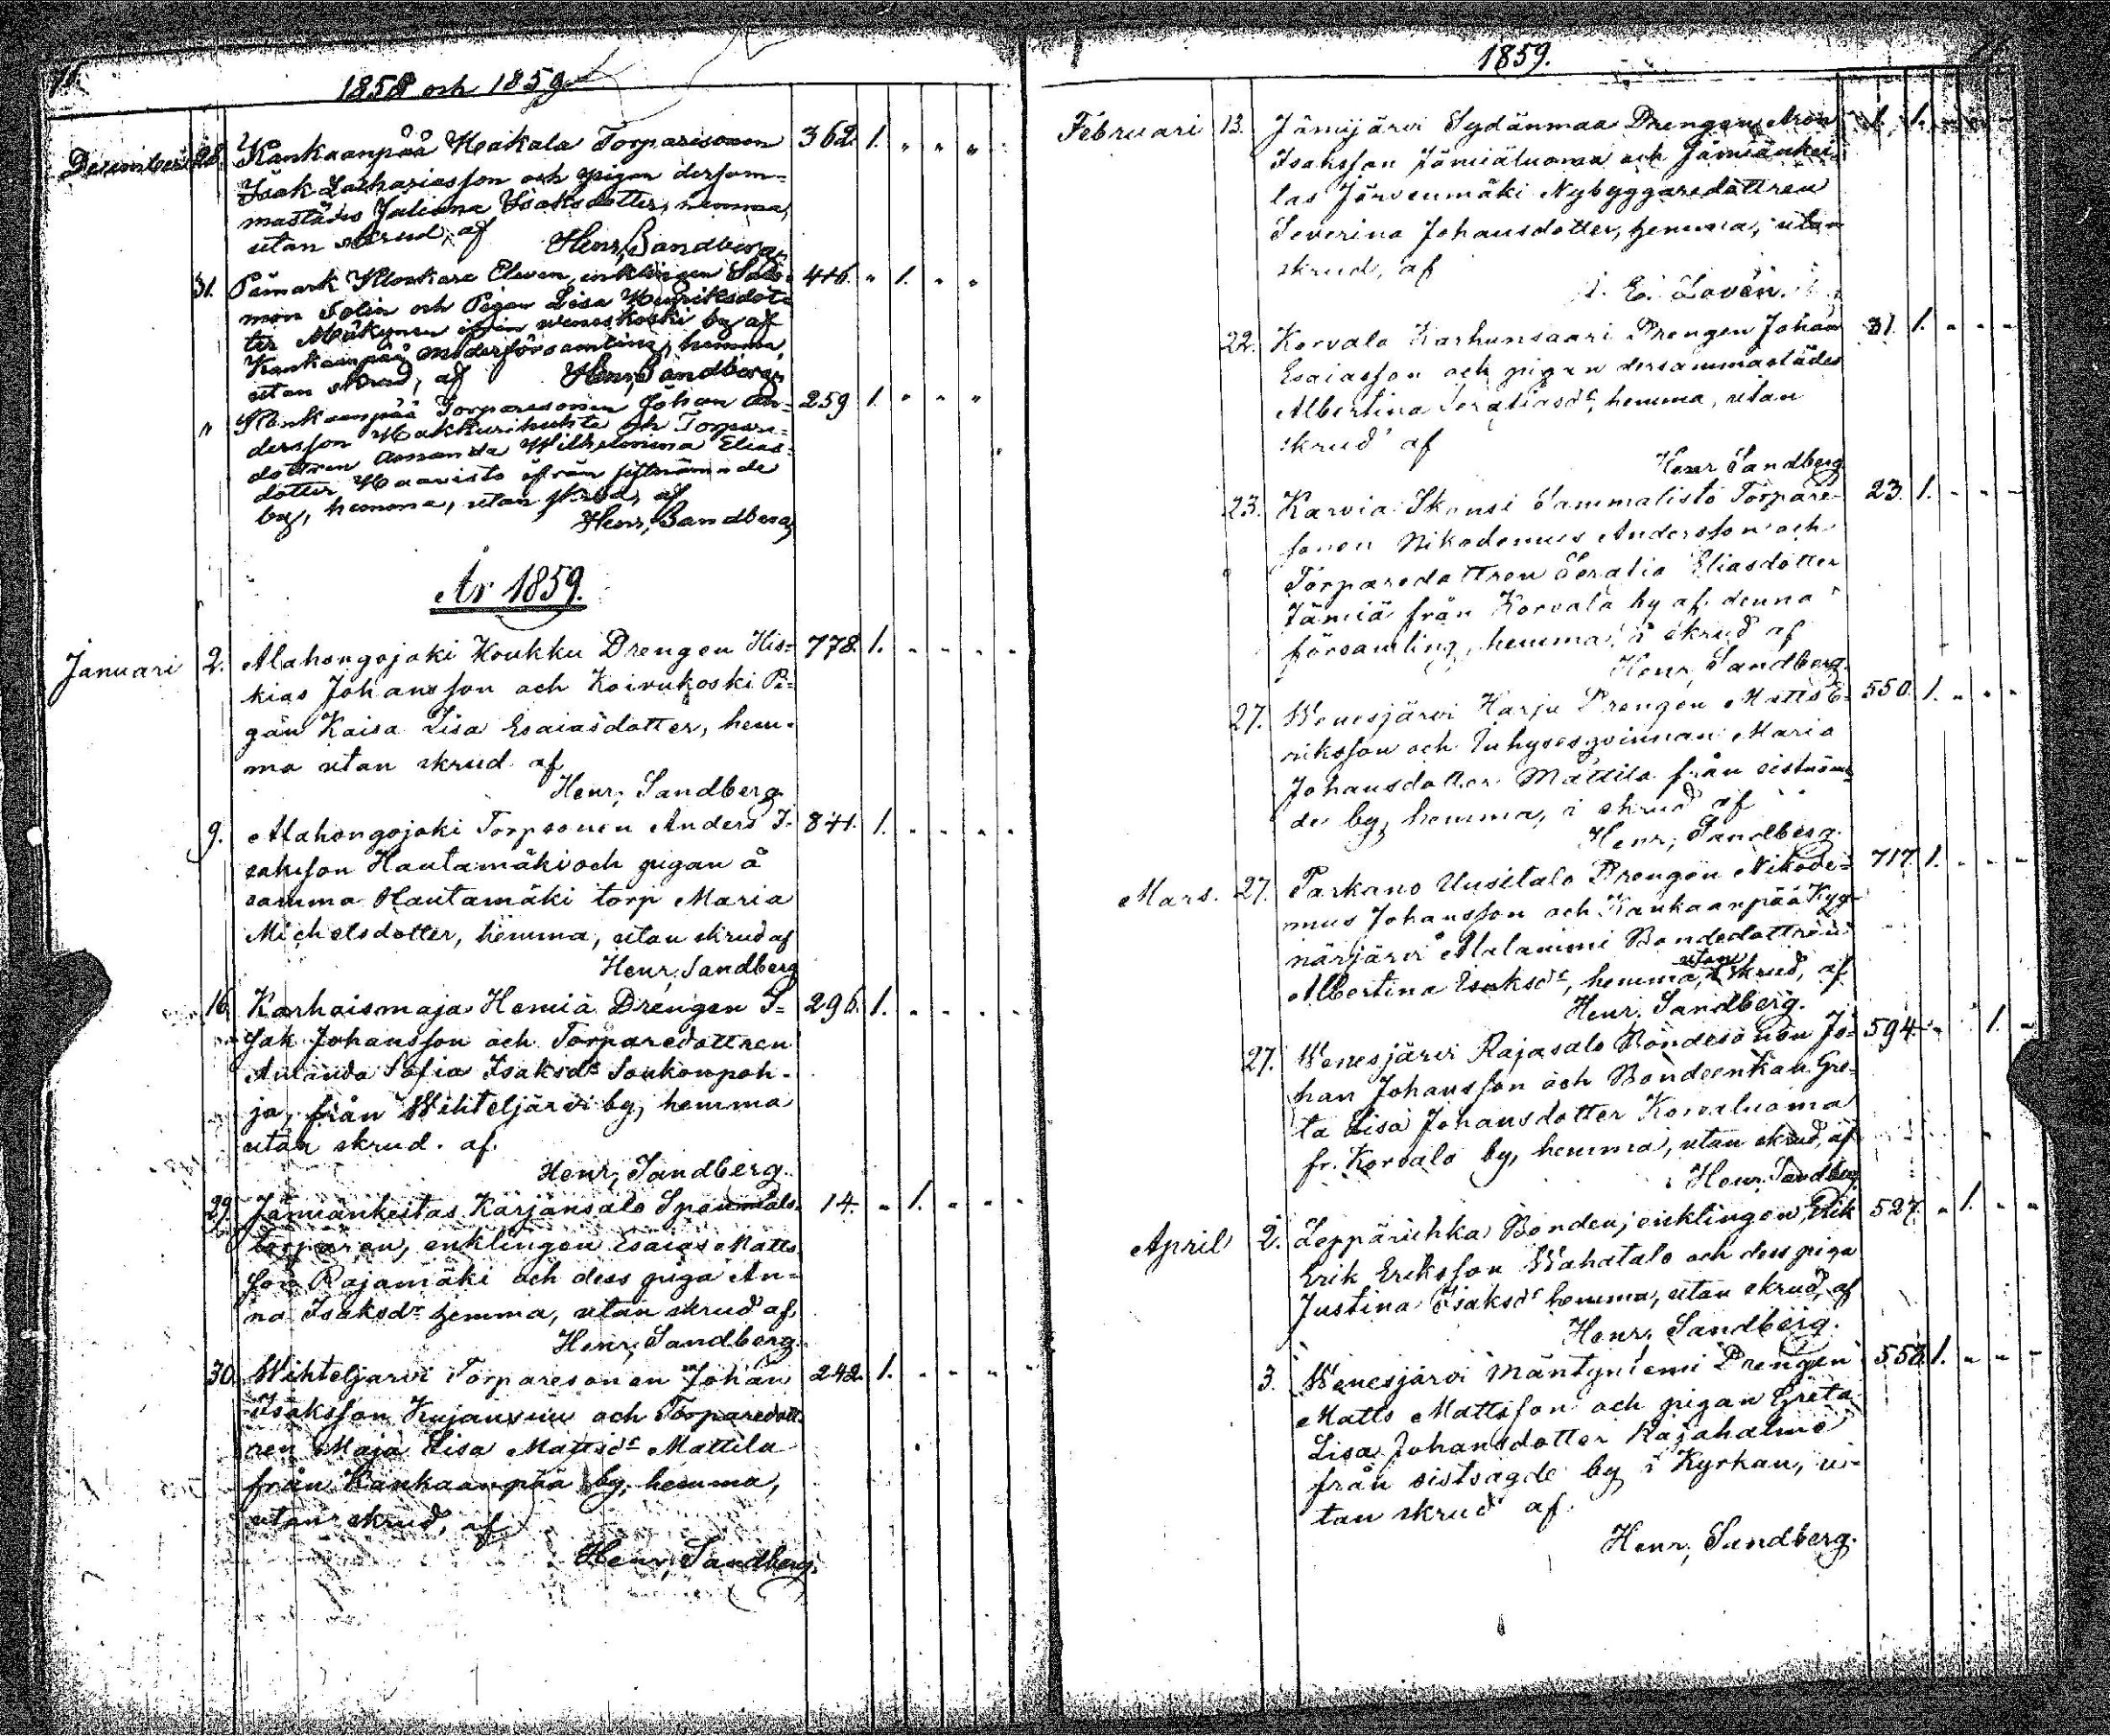 1858 och 1859
December 28. Kankaanpää Makala Torparesonen 362. 1. " " "
Isak Zachariasson och pigan dersom-
mastädes Juliana Isaksdotter, hemma,
utan skrud, af
Henr, Sandberg.
31. Påmark Klockare Eleven, enklingen Salo- 416. " 1. " "
mon Tolin och Pigan Lisa Henriksdot-
ter Mäkynen ifrån weneskoski by af
Kankaanpää moderförsamling, hemma,
utan skrud, af Henr, Sandberg.
" Kankaanpää Torparesonen Johan An- 259 1. " " "
dersson och Torpare-
dottren Amanda Wilhelmina Elias-
dotter Haavisto ifrån sistnämnde
by, hemma, utan skrud, af
Henr, Sandberg
År 1859.
Januari 2. Alahongojoki Koukku Drengen His- 778. 1. " " " "
kias Johansson och Koivukoski Pi-
gan Kaisa Lisa Esaiasdotter, hem-
ma utan skrud af
Henr, Sandberg.
9. Alahongojoki Torpsonen Anders I- 841. 1. " " " "
saksson Hautamäki och pigan å
samma Hautamäki torp Maria
Michelsdotter, hemma, utan skrud af
Henr, Sandberg
16. Karhoismaja Hemiä Drengen I- 296. 1. " " " "
sak Johansson och Torparedottren
Amanda Sofia Isaksdr Soukonpoh-
ja, från Wihteljärvi by, hemma
utan skrud. af.
Henr, Sandberg.
29. Jämiänkeitas Karjänsalo Spanmåls- 14. " 1. " " "
torparen, enklingen Esaias Matts-
son Rajamäki och dess piga An-
na Isaksdr hemma, utan skrud af,
Henr, Sandberg.
30. Wihteljärvi Torparesonen Johan 242. 1. " " " "
Isaksson Kujansuu och Torparedott-
ren Maja Lisa Mattsdr Mattila
från Kankaanpää by, hemma,
utan skrud, af
Henr, Sandberg.
1859.
Februari 13. Jämijärvi Sydänmaa Drengen Aron 1. 1. " " "
Isaksson Jämiäluoma och Jämiänkei-
las Järvenmäki Nybyggaredottren
Severina Johansdotter, hemma, utan
skrud, af
E. Lovén.
22. Korvala Karhunsaari Drengen Johan 31. 1. " " "
Esaiasson och pigan dersammastädes
Albertina hemma, utan
skrud af
Henr Sandberg
23. Karvia Skansi Sammalistö Torpare- 23. 1. " " "
sonen Nikodemus Andersson och
Torparedottren Seralia Eliasdotter
Jämiä från Korvala by af denna
församling, hemma, i skrud af
Henr, Sandberg.
27. Wenesjärvi Harju Drengen Matts E- 550. 1. " " "
riksson och Inhysesqvinnan Maria
Johansdotter Mattila från sistnämn-
de by, hemma, i skrud af
Henr, Sandberg.
Mars. 27. Parkano Uusitalo Drengen Nikode- 717. 1. " " "
mus Johansson och Kankaanpää Kyy-
närjärvi Alaniemi Bondedottren
Albertina Isaksdr, hemma, utan skrud, af
Henr, Sandberg.
27. Wenesjärvi Rajasalo Bondesonen Jo- 594. " 1. "
han Johansson och Bondeenkan Gre-
ta Lisa Johansdotter Korvaluoma
fr. Korvala by, hemma, utan skrud, af
Henr, Sandberg
April 2. Leppäruhka Bonden, enklingen, Erik 527. " 1. " "
Erik Eriksson Wahatalo och dess piga
Justina Isaksdr hemma, utan skrud, af
Henr, Sandberg.
3. Wenesjärvi Mäntyniemi Drengen 558. 1. " " "
Matts Mattsson och pigan Greta
Lisa Johansdotter Rajahalme
från sistsagde by i Kyrkan, u-
tan skrud af.
Henr, Sandberg.